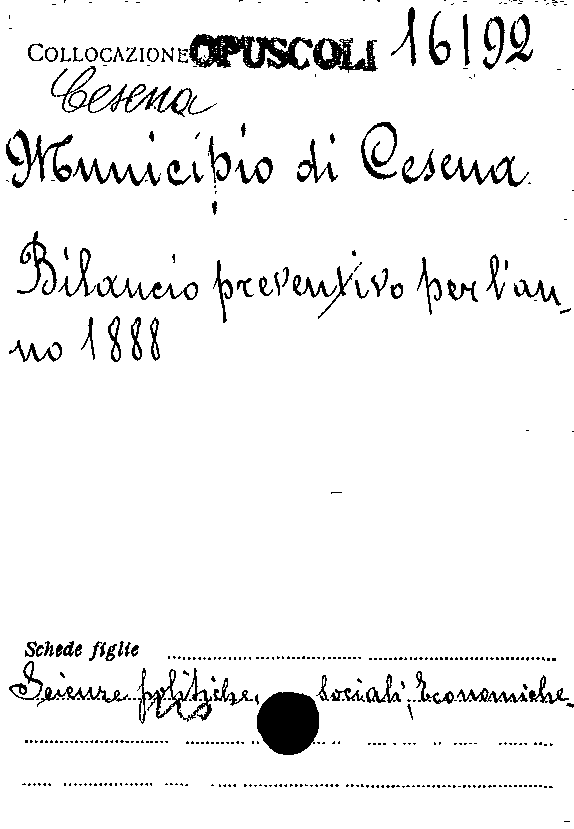 COLLOCAZIONE OPUSCOLI 16/92
Cesena
Municipio di Cesena
Bilancio preventivo per l'an-
no 1888
Schede figlie
Scienze politiche, sociali, Economiche